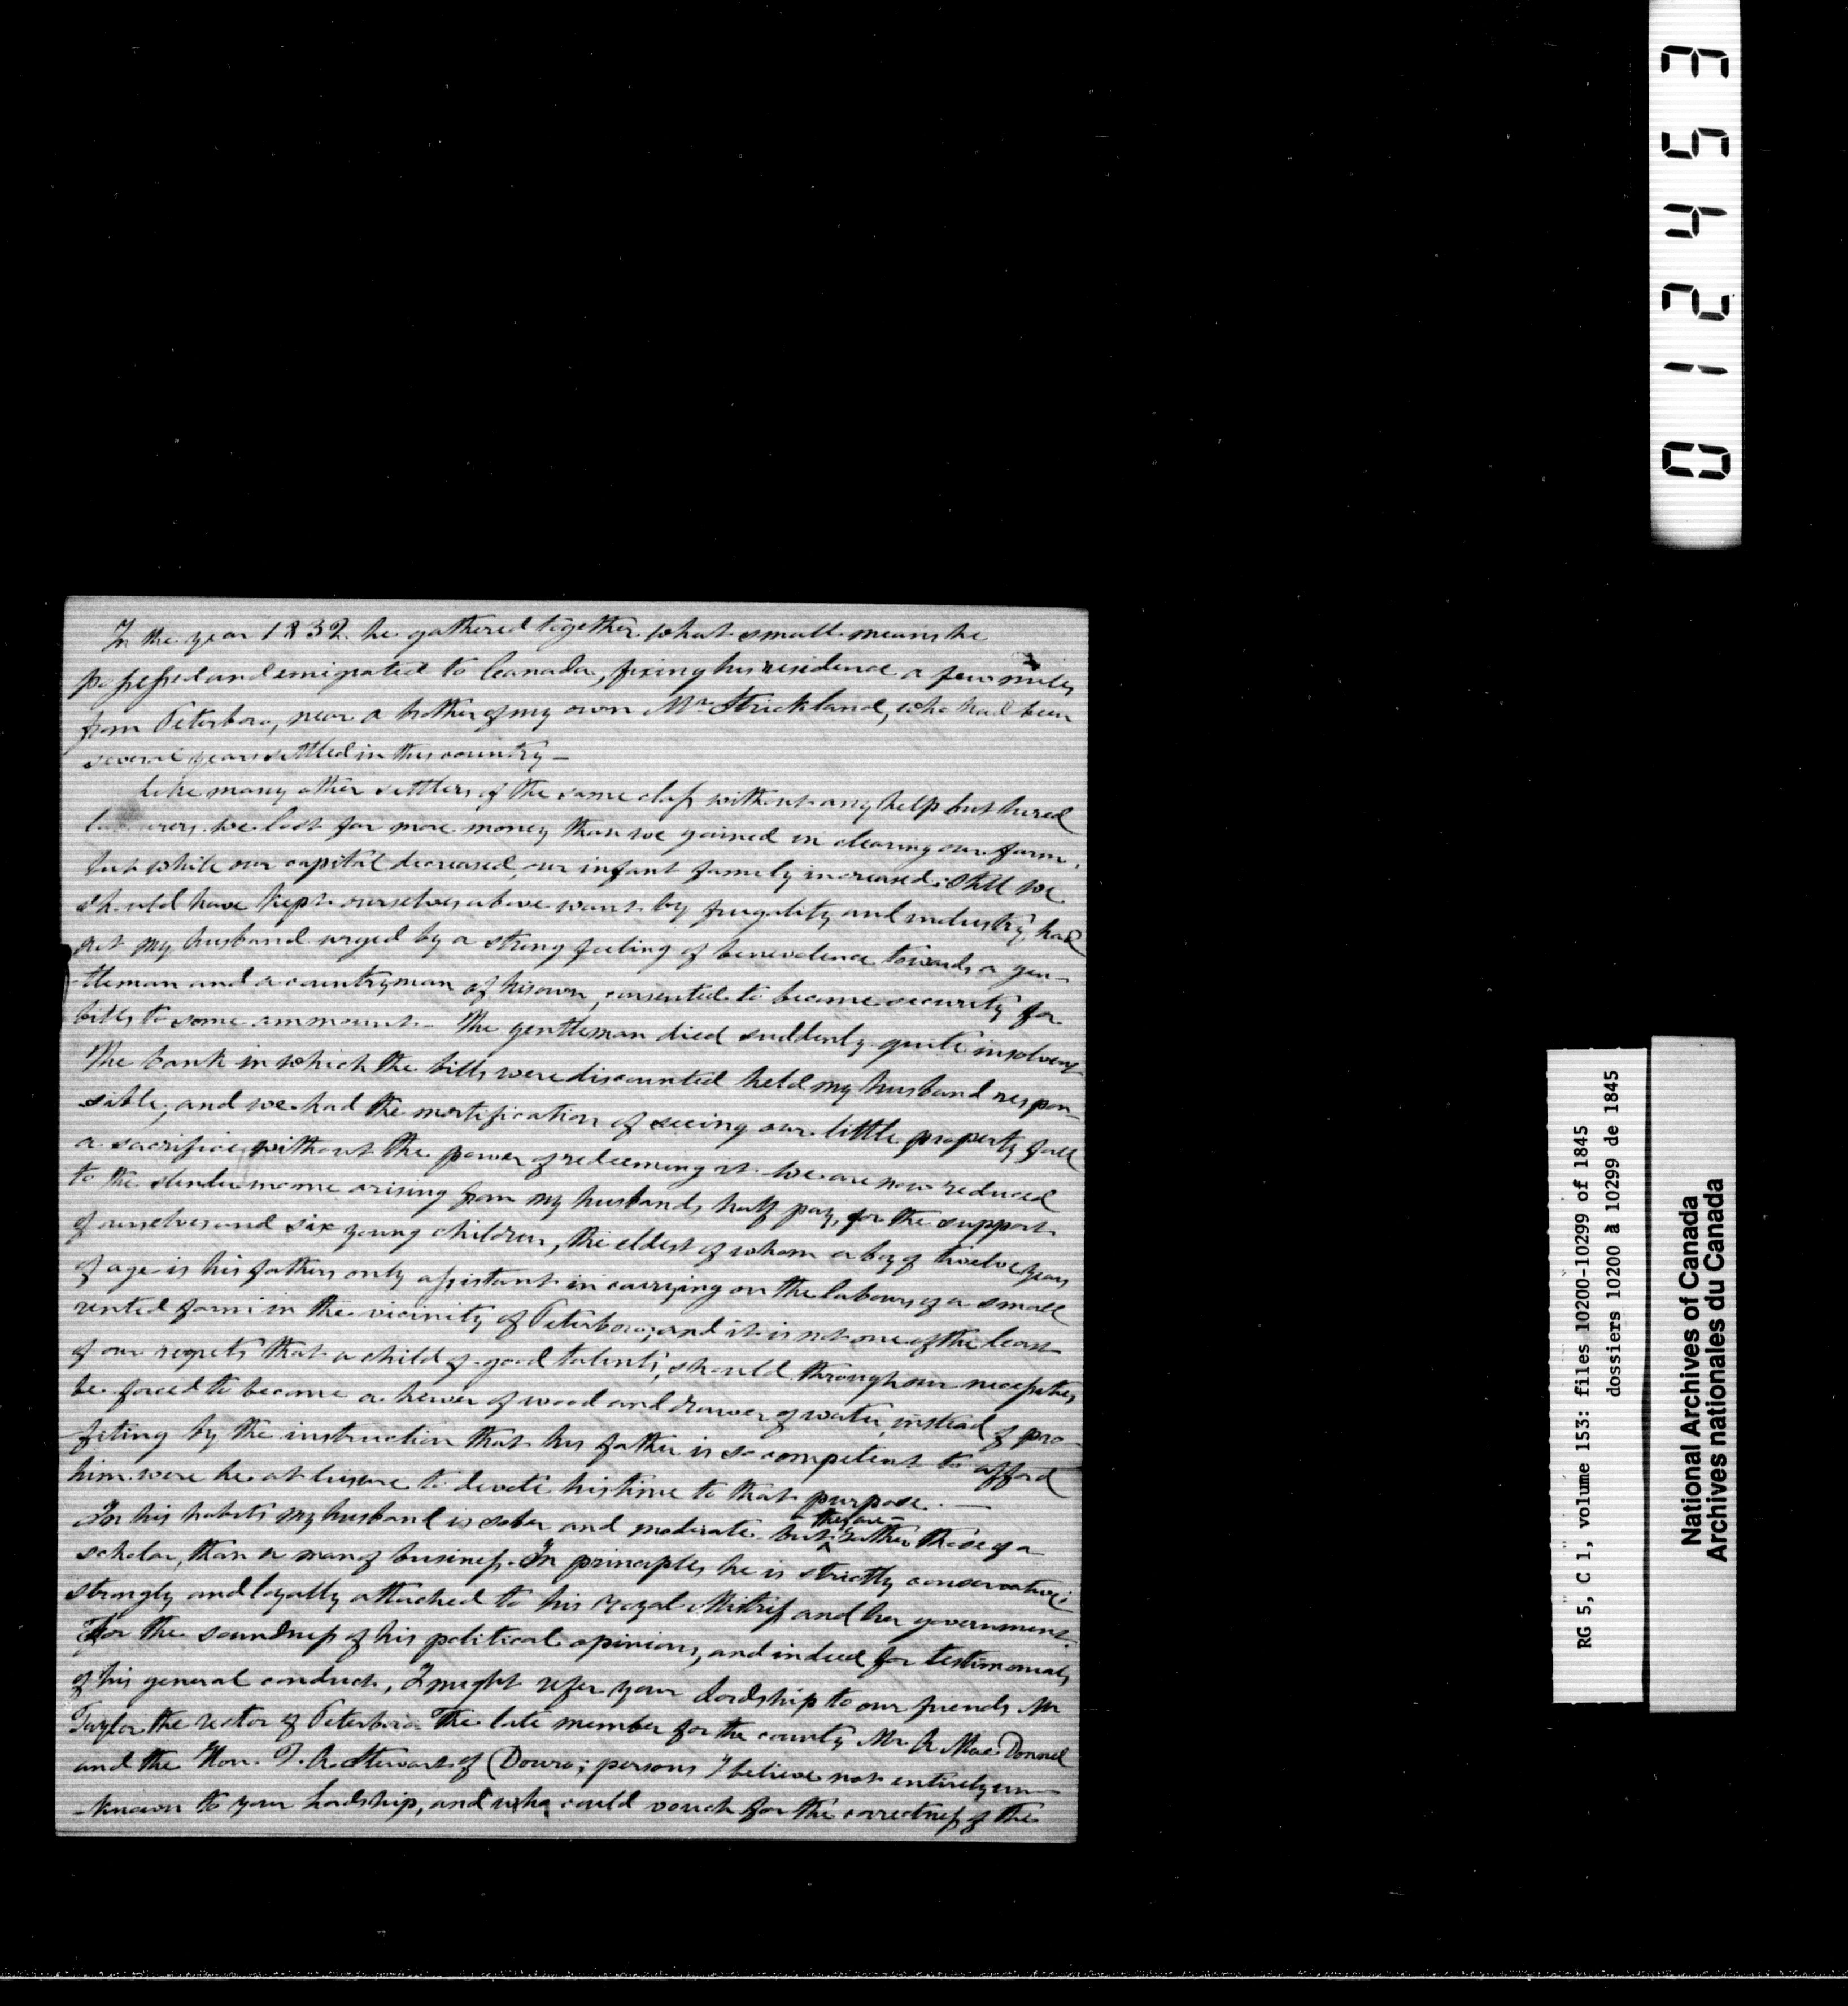 In the year 1832 he gathered together what small means he
possessed and emigrated to Canada, fixing his residence a few miles
from Peterboro, near a brother of my own Mr Strickland, who had been
several years settled in this country—
Like many other settlers of the same class without any help but hired
we lost far more money than we gained in clearing our farm,
but while our capital decreased, our infant family increased: still we
should have kept ourselves above want by frugality and industry, had
not my husband urged by a strong feeling of benevolence towards a gen-
-tleman and a countryman of his own, consented to become security for
bills to some ammount— The gentleman died suddenly quite insolvent
The bank in which the bills were discounted held my husband respon-
sible, and we had the mortification of seeing our little property fall
a sacrifice, without the power of redeeming it— We are now reduced
to the slender income arising from my husbands half pay, for the support
of ourselves and six young children, the eldest of whom a boy of twelve years
of age is his fathers only assistant in carrying on the labours of a small
rented farm in the vicinity of Peterboro; and it is not one of the least
of our regrets that a child of good talents, should through our necessities
be forced to become a hewer of wood and drawer of water, instead of pro-
-fiting by the instruction that his father is so competent to afford
him were he at leisure to devote his time to that purpose.—
In his habits my husband is sober and moderate but they are rather those of a
scholar, than a man of business. In principles he is strictly conservative;
strongly and loyally attached to his royal Mistress and her government.
For the soundness of his political opinions, and indeed for testimonials
of his general conduct, I might refer your Lordship to our friends Mr
Taylor the rector of Peterboro The late member for the county Mr A MacDonnel
and the Hon. T. A. Stewart of Douro; persons I believe not entirely un-
-known to your Lordship, and who could vouch for the correctness of the
012453
RG 5, C 1, volume 153: files 10200-10299 of 1845
dossiers 10200 à 10299 de 1845
National Archives of Canada
Archives nationales du Canada